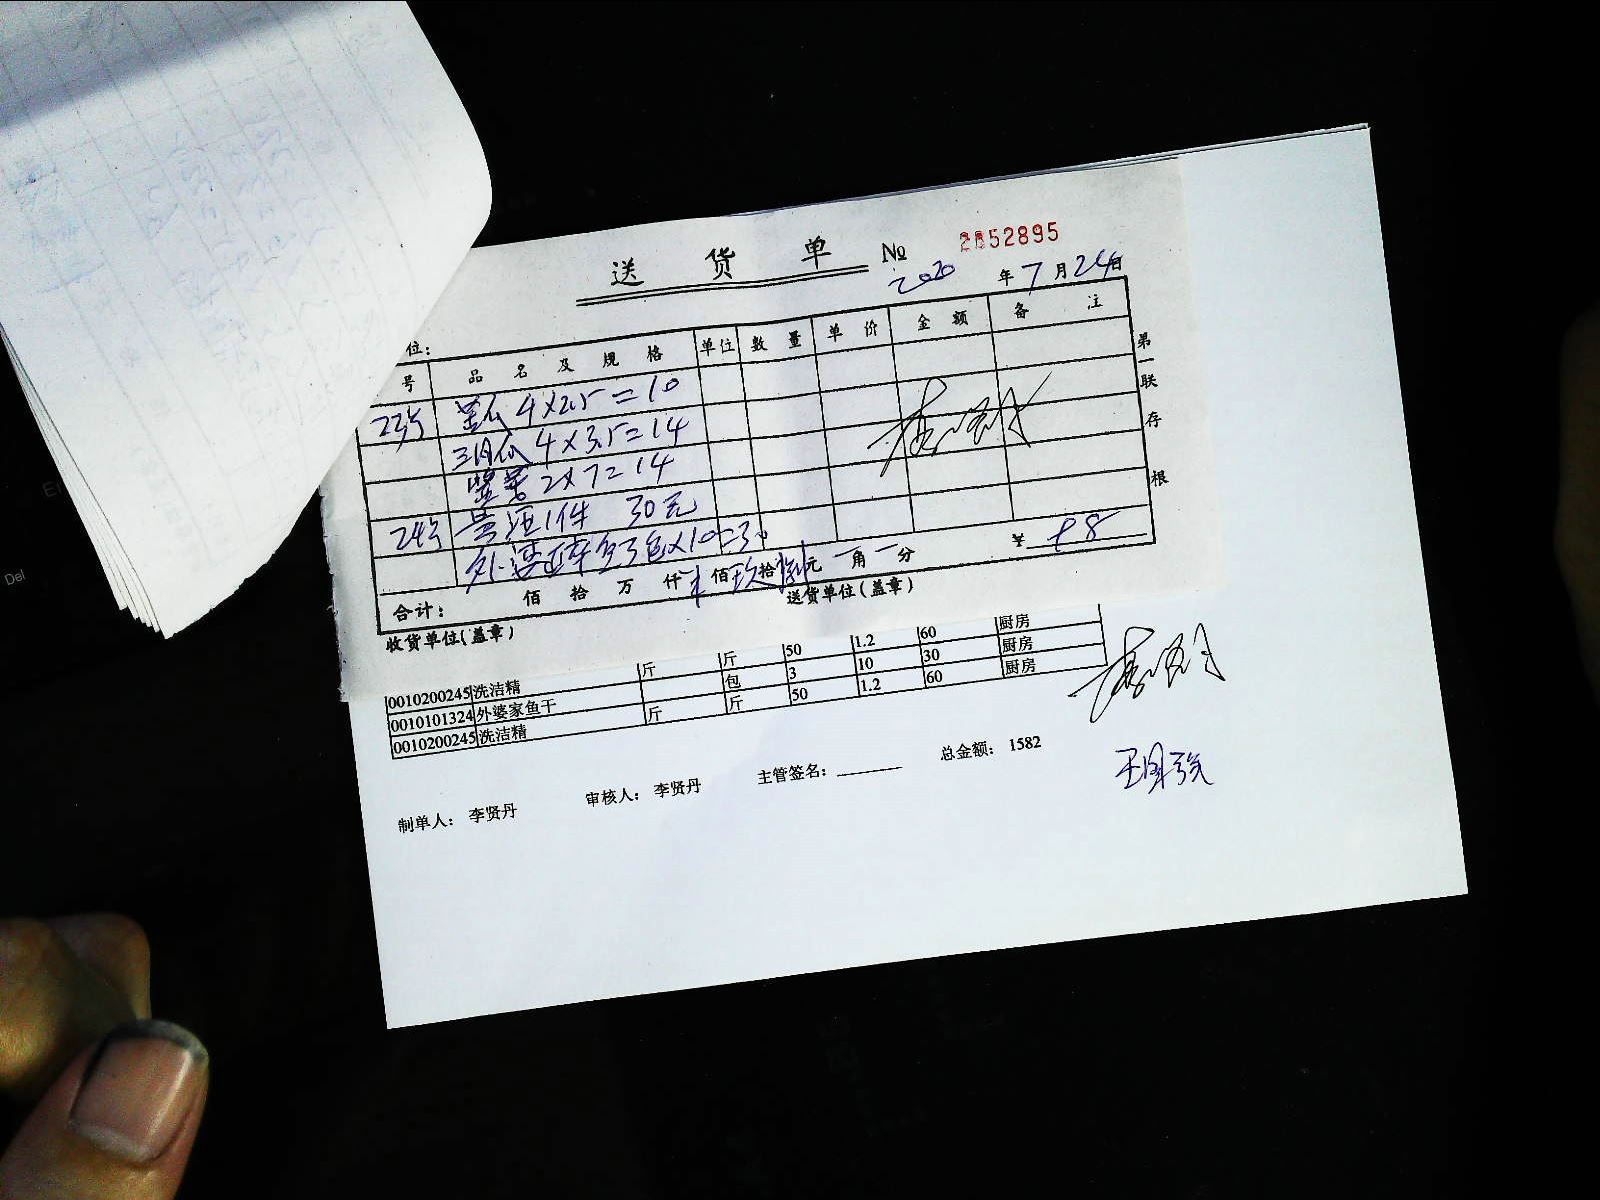 送 货 单 № 2852895
2020 年 7 月 24 日
位：
号 品 名 及 规 格 单位 数 量 单 价 金 额 备 注
23号 4×2.5=10
三月瓜 4×3.5=14
2×7=14
24号 1件 30元
外婆 3包×10=30
合计： 佰 拾 万 仟 佰 玖拾捌元 一角 一分 ¥ 98
收货单位(盖章) 送货单位(盖章)
第一联存根
斤 斤 50 1.2 60 厨房
0010200245 洗洁精 包 3 10 30 厨房
0010101324 外婆家鱼干 斤 斤 50 1.2 60 厨房
0010200245 洗洁精
制单人： 李贤丹 审核人： 李贤丹 主管签名： 总金额： 1582
王国强